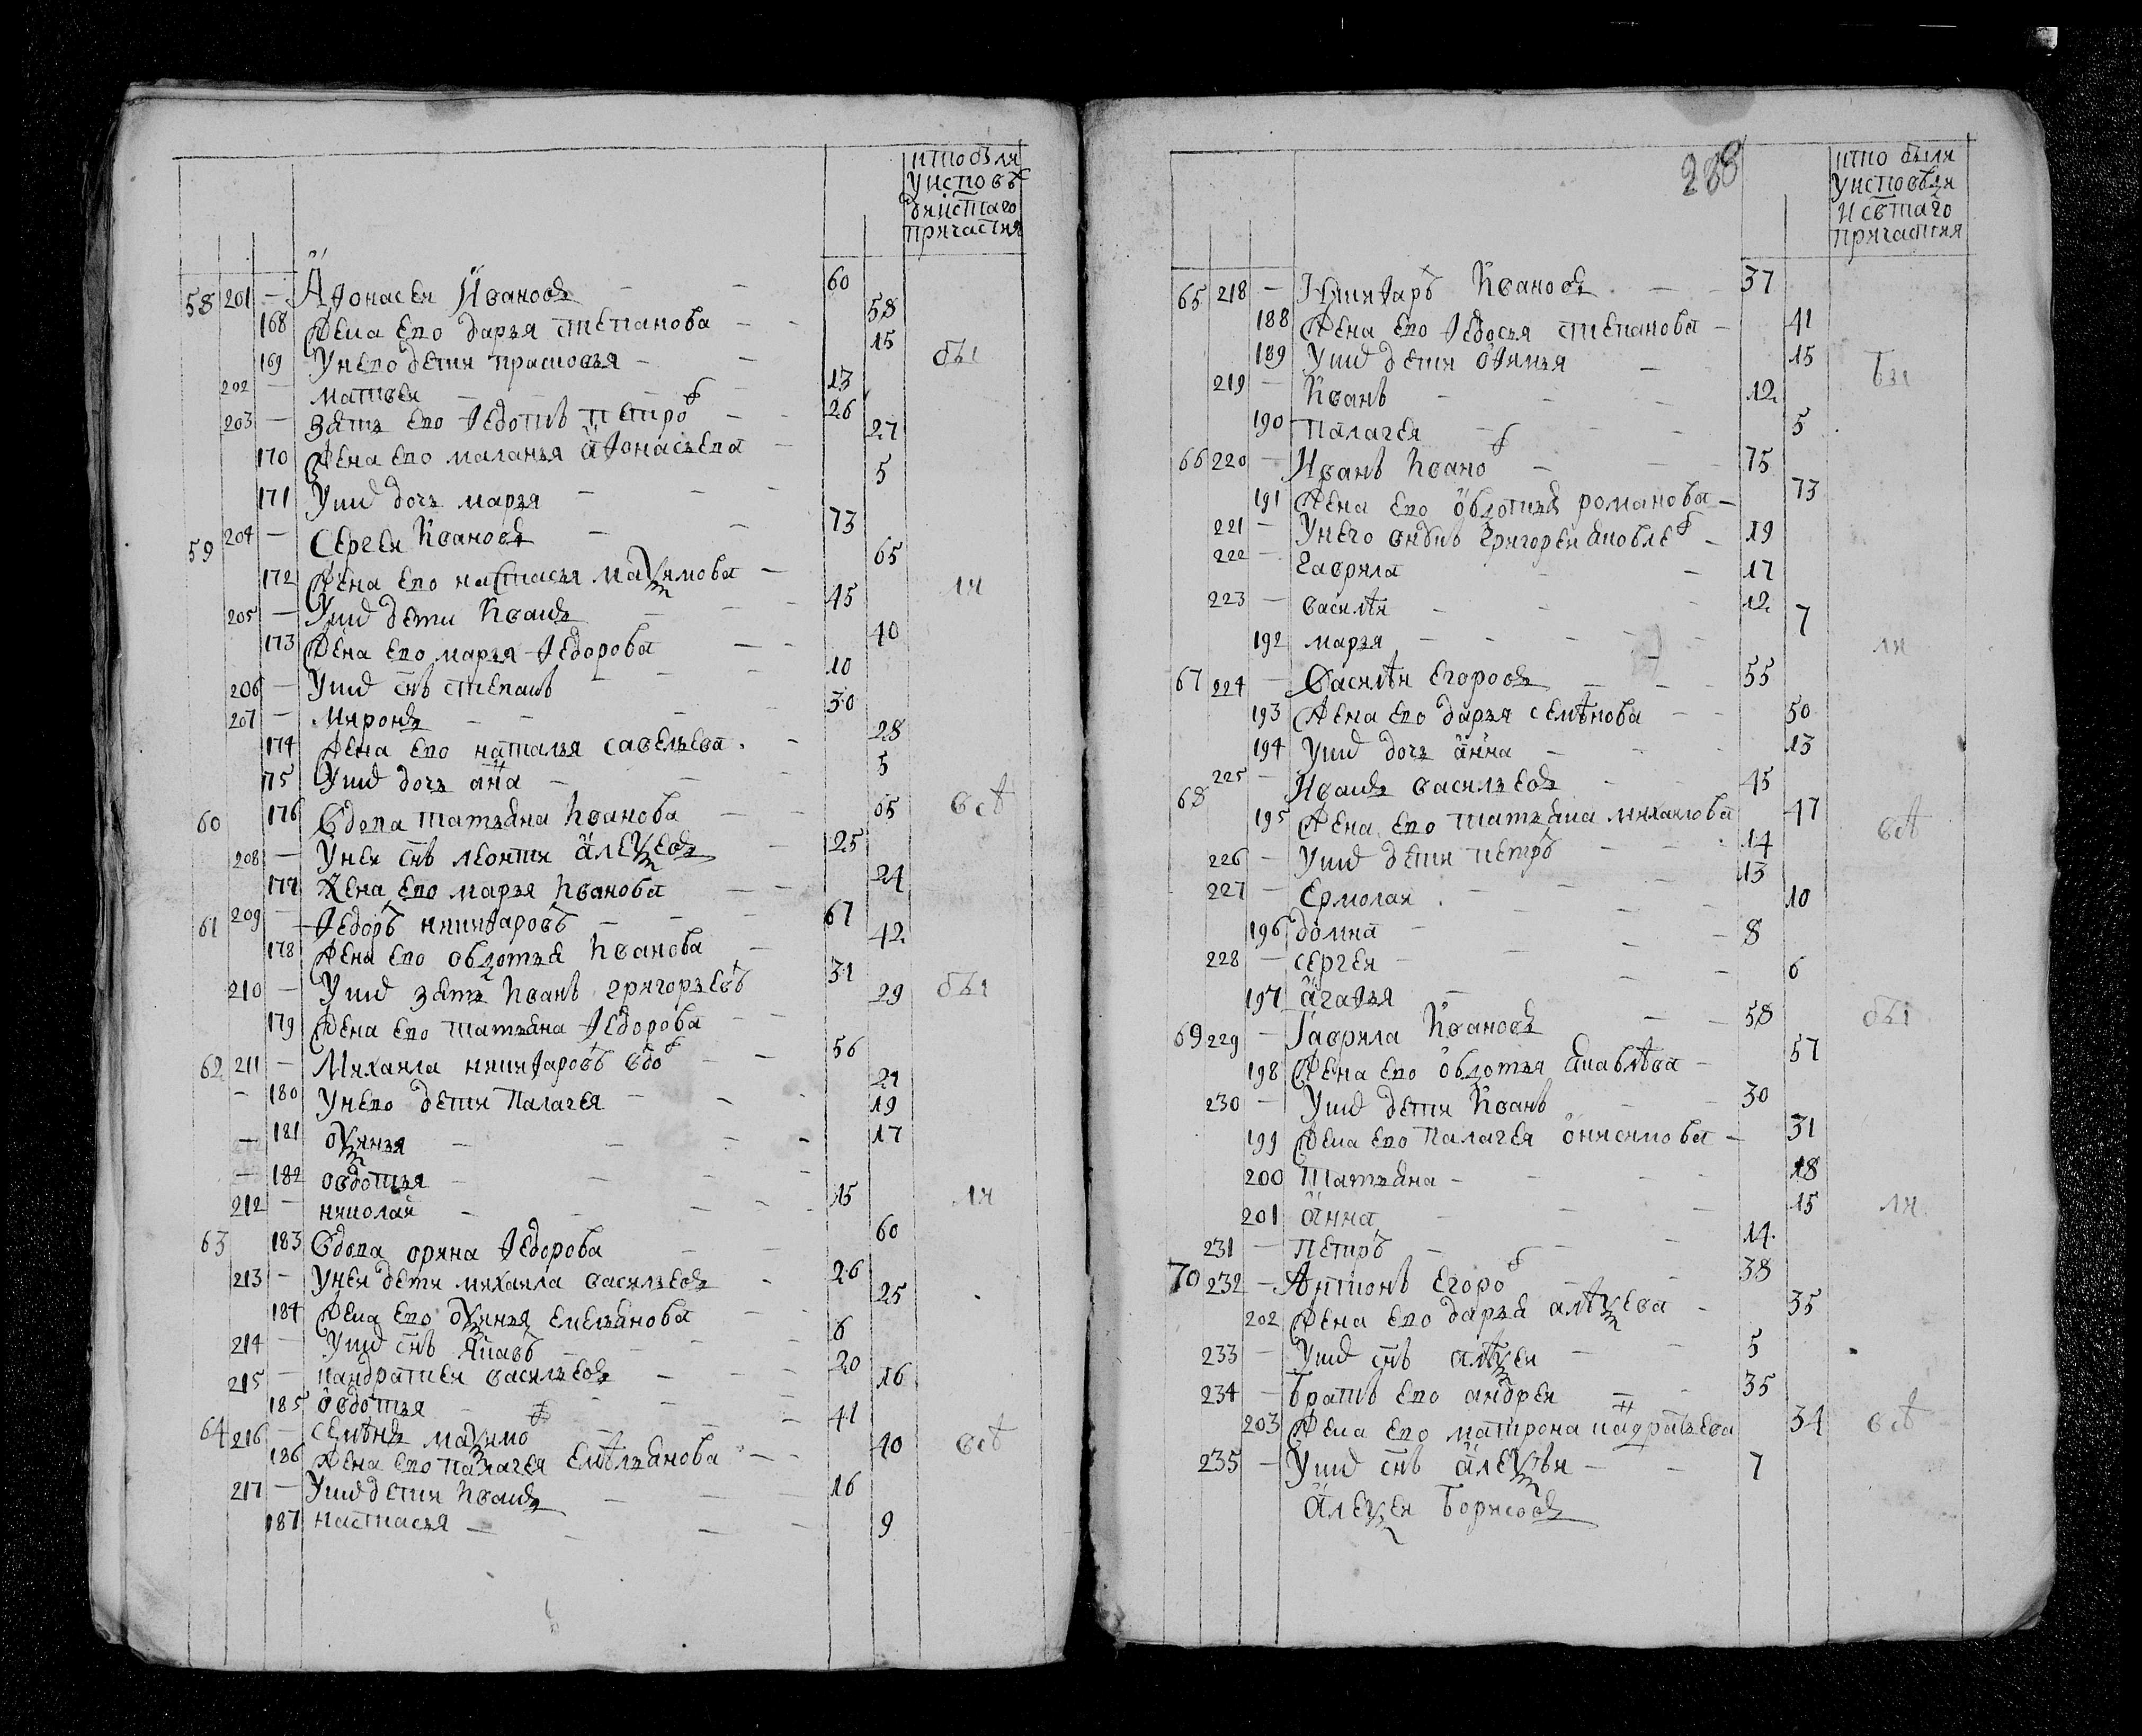 кто были
у исповѣ
ди и с͠таго
причастия
58 201 — Афонасеи Ивановъ — — 60
168 Жена ево даръя степанова — — 58
169 У нево дети прасковъя — — 15 бы
202 — матвеи — — 13
203 — зять ево федотъ петров — — 26
170 Жена ево маланъя афонасъева — 27
171 У них дочь маръя — — — 5
59 204 — Сергеи Ивановъ — — 73
172 Жена ево настасья махимова — 65
205 — У них дети Иванъ — — — 45 ли
173 Жена ево маръя федорова — — 40
206 — У них снъ степанъ — — — 10
207 — Миронъ — — — 30
174 Жена ево наталъя савелъева — 28
175 У них дочь анна — — — 5
60 176 Вдова татъяна Иванова — — 65 всѣ
208 — У неи снъ леонтеи алеѯеовъ — 25
177 Жена ево маръя Иванова — — 24
61 209 — федоръ никифаровъ — — — 67
178 Жена ево овдотъя Иванова — 42
210 — У них зять Иванъ григоръевъ 31 бы
179 Жена ево татъяна федорова — — 29
62 211 — Михаила никифаровъ вдов — — 56
— 180 У нево дети палагея — — — 21
— 181 оѯинъя — — — — 19
— 182 овдотъя — — — 17
212 — николаи — — — — 15 ли
63 183 Вдова орина федорова — — 60
213 — У неи дети михаила василъевъ — 26
184 Жена ево оѯинъя емелъянова 25
214 — У них снъ Яковъ — — — 6
215 — кандратеи василъевъ — — — 20
185 овдотъя — — — 16
64 216 — семѣнъ маѯимов — — 41
186 Жена ево палагея емѣлъянова — — 40 всѣ
217 — У них дети Иванъ — — — 16
187 настасъя — — — — 9
288
кто были
у исповѣди
и с͠втаго
причастия
65 218 — Никифаръ Ивановъ — — 37
188 Жена ево федосъя степанова — 41
189 У них дети офимъя — 15 бы
219 — Иванъ — — — 12
190 палагея — — — 5
66 220 — Иванъ Иванов — — — 75
191 Жена ево овдотъя романова — 73
221 — У нево внукъ григореи яковлев — 19
222 — гаврила — — 17
223 — василѣи — — 12
192 маръя — — — — — 7 ли
67 224 — Василѣи Егоровъ — — — 55
193 Жена ево даръя семѣнова — — 50
194 У них дочь анна — — — 13
68 225 — Иванъ василъевъ — — 45
195 Жена ево татъяна михаилова 47
226 — У них дети петръ — — — 14 всѣ
227 — Ермолаи — — — 13
196 домна — — — 10
228 — сергеи — — — 8
197 агафъя — — — 6
69 229 — Гаврила Ивановъ — — 58 бы
198 Жена ево овдотъя яковлѣва — 57
230 — У них дети Иванъ — — 30
199 Жена ево палагея онисимова — 31
200 Татъяна — — — 18
201 анна — — — 15 ли
231 — петръ — — — 14
70 232 — Антонъ Егоров — — 38
202 Жена ево даръя алѣѯева — 35
233 — У них снъ алѣѯеи — — 5
234 — Братъ ево андреи — — 35
203 Жена ево матрона кадратъева 34 всѣ
235 — У них снъ алеѯѣи — — 7
алеѯеи Борисовъ